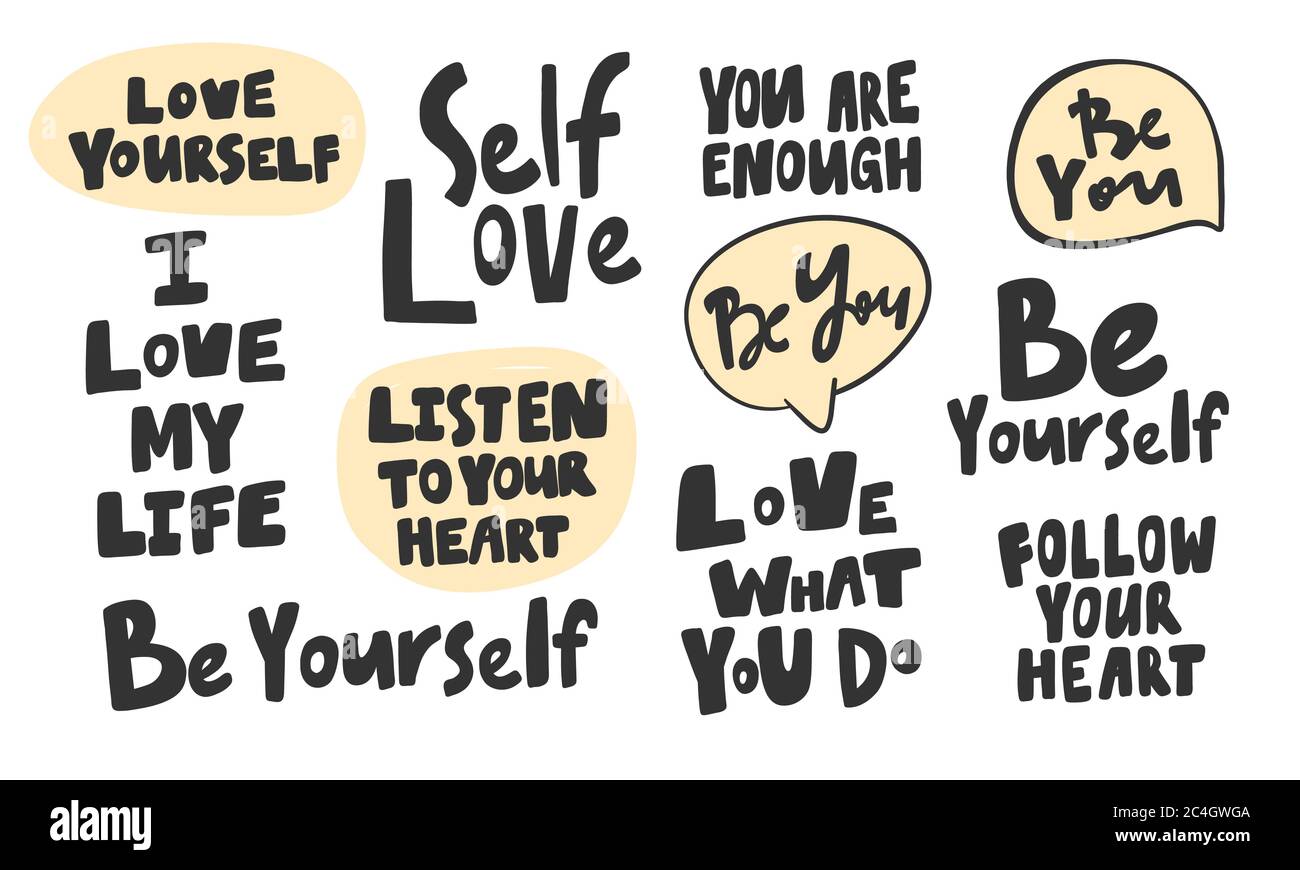 LOVE
YOURSELF
I
LOVE
MY
LIFE
Self
LOVe
LISTEN
TO YOUR
HEART
Be Yourself
YOU ARE
ENOUGH
Be You
LOVE
WHAT
YOU DO
Be
You
Be
Yourself
FOLLOW
YOUR
HEART
alamy
Image ID: 2C4GWGA
www.alamy.com